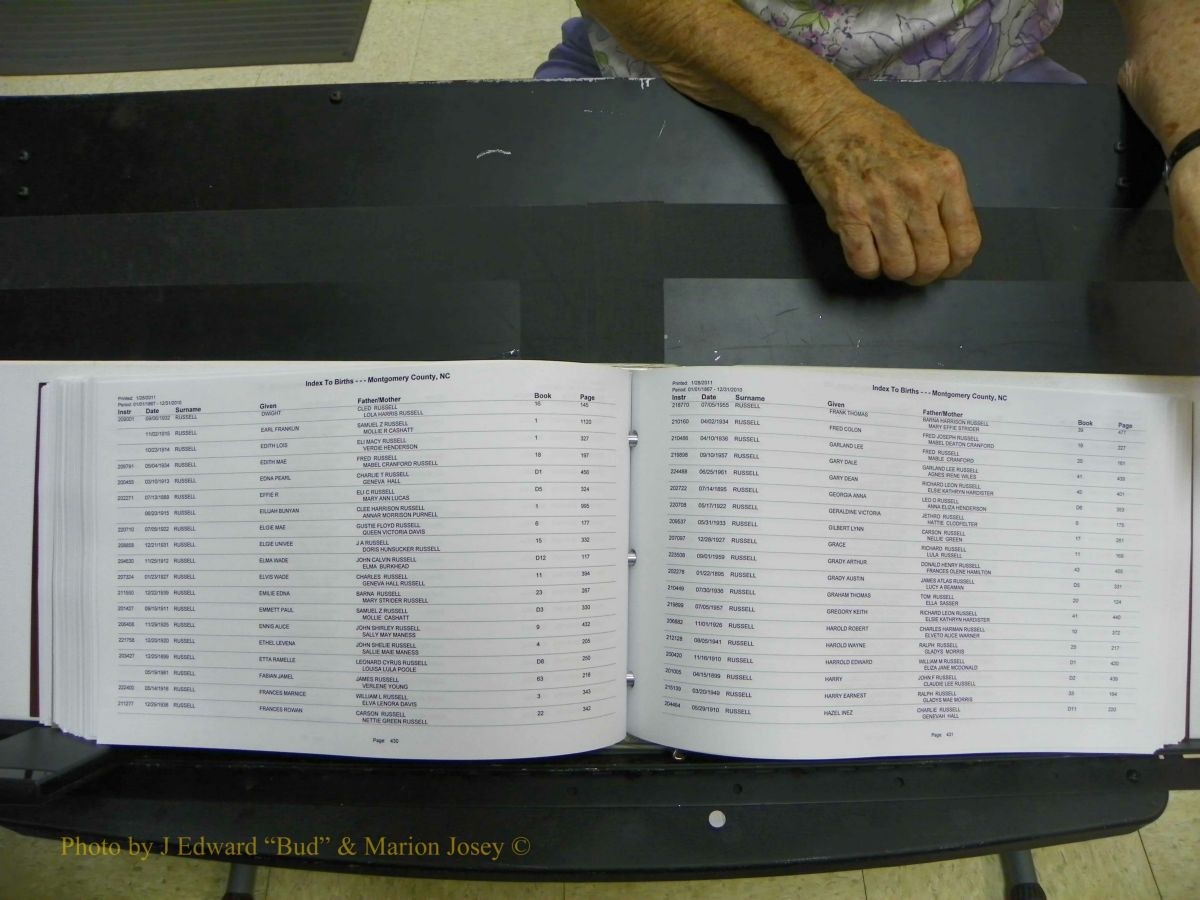 Index To Births - - - Montgomery County, NC
Printed: 1/28/2011
Period: 01/01/1867 - 12/31/2010
Instr Date Surname Given Father/Mother Book Page
209001 09/06/1932 RUSSELL DWIGHT CLED RUSSELL 16 145
LOLA HARRIS RUSSELL
11/02/1915 RUSSELL EARL FRANKLIN SAMUEL Z RUSSELL 1 1120
MOLLIE R CASHATT
10/23/1914 RUSSELL EDITH LOIS ELI MACY RUSSELL 1 327
VERDIE HENDERSON
209791 05/04/1934 RUSSELL EDITH MAE FRED RUSSELL 18 197
MABEL CRANFORD RUSSELL
200455 03/10/1913 RUSSELL EDNA PEARL CHARLIE T RUSSELL D1 450
GENEVA HALL
202271 07/13/1889 RUSSELL EFFIE R ELI C RUSSELL D5 324
MARY ANN LUCAS
06/23/1915 RUSSELL ELIJAH BUNYAN CLEE HARRISON RUSSELL 1 995
ANNAR MORRISON PURNELL
220710 07/25/1922 RUSSELL ELGIE MAE GUSTIE FLOYD RUSSELL 6 177
QUEEN VICTORIA DAVIS
208808 12/21/1931 RUSSELL ELGIE UNIVEE J A RUSSELL 15 332
DORIS HUNSUCKER RUSSELL
204630 11/25/1912 RUSSELL ELMA WADE JOHN CALVIN RUSSELL D12 117
ELMA BURKHEAD
207324 01/23/1927 RUSSELL ELVIS WADE CHARLES RUSSELL 11 394
GENEVA HALL RUSSELL
211550 12/22/1939 RUSSELL EMILIE EDNA BARNA RUSSELL 23 267
MARY STRIDER RUSSELL
201427 09/15/1911 RUSSELL EMMETT PAUL SAMUEL Z RUSSELL D3 330
MOLLIE CASHATT
206406 11/29/1925 RUSSELL ENNIS ALICE JOHN SHIRLEY RUSSELL 9 432
SALLY MAY MANESS
221758 12/20/1920 RUSSELL ETHEL LEVENA JOHN SHELIE RUSSELL 4 205
SALLIE MAIE MANESS
203427 12/25/1899 RUSSELL ETTA RAMELLE LEONARD CYRUS RUSSELL D8 250
LOUISA LULA POOLE
05/19/1981 RUSSELL FABIAN JAMEL JAMES RUSSELL 63 218
VERLENE YOUNG
222403 05/14/1918 RUSSELL FRANCES MARNICE WILLIAM L RUSSELL 3 343
ELVA LENORA DAVIS
211277 12/29/1938 RUSSELL FRANCES ROWAN CARSON RUSSELL 22 342
NETTIE GREEN RUSSELL
Page 430
Index To Births - - - Montgomery County, NC
Printed: 1/28/2011
Period: 01/01/1867 - 12/31/2010
Instr Date Surname Given Father/Mother Book Page
218770 07/05/1955 RUSSELL FRANK THOMAS BARNA HARRISON RUSSELL 39 477
MARY EFFIE STRIDER
210160 04/02/1934 RUSSELL FRED COLON FRED JOSEPH RUSSELL 18 227
MABEL DEATON CRANFORD
210486 04/10/1936 RUSSELL GARLAND LEE FRED RUSSELL 20 161
MABLE CRANFORD
219898 09/10/1957 RUSSELL GARY DALE GARLAND LEE RUSSELL 41 439
AGNES IRENE WILES
224488 06/25/1961 RUSSELL GARY DEAN RICHARD LEON RUSSELL 401
ELSIE KATHRYN HARDISTER
202722 07/14/1895 RUSSELL GEORGIA ANNA LEO D RUSSELL D6 353
ANNA ELIZA HENDERSON
220708 05/17/1922 RUSSELL GERALDINE VICTORIA JETHRO RUSSELL 175
HATTIE CLODFELTER
209537 05/31/1933 RUSSELL GILBERT LYNN CARSON RUSSELL 17 261
NELLIE GREEN
207097 12/28/1927 RUSSELL GRACE RICHARD RUSSELL 11 168
LULA RUSSELL
223508 09/01/1959 RUSSELL GRADY ARTHUR DONALD HENRY RUSSELL 43 405
FRANCES OLENE HAMILTON
202278 01/22/1895 RUSSELL GRADY AUSTIN JAMES ATLAS RUSSELL D5 331
LUCY A BEAMAN
210449 07/30/1936 RUSSELL GRAHAM THOMAS TOM RUSSELL 20 124
ELLA SASSER
219899 07/05/1957 RUSSELL GREGORY KEITH RICHARD LEON RUSSELL 41 440
ELSIE KATHRYN HARDISTER
206882 11/01/1926 RUSSELL HAROLD ROBERT CHARLES HARMAN RUSSELL 10 372
ELVETO ALICE WARNER
212128 08/05/1941 RUSSELL HAROLD WAYNE RALPH RUSSELL 25 217
GLADYS MORRIS
200420 11/16/1910 RUSSELL HARROLD EDWARD WILLIAM M RUSSELL D1 420
ELIZA JANE MCDONALD
201005 04/15/1899 RUSSELL HARRY JOHN F RUSSELL D2 439
CLAUDIE LEE RUSSELL
215139 03/20/1949 RUSSELL HARRY EARNEST RALPH RUSSELL 33 164
GLADYS MAE MORRIS
204464 05/29/1910 RUSSELL HAZEL INEZ CHARLIE RUSSELL D11 220
GENEVAH HALL
Page 431
Photo by J Edward “Bud” & Marion Josey ©